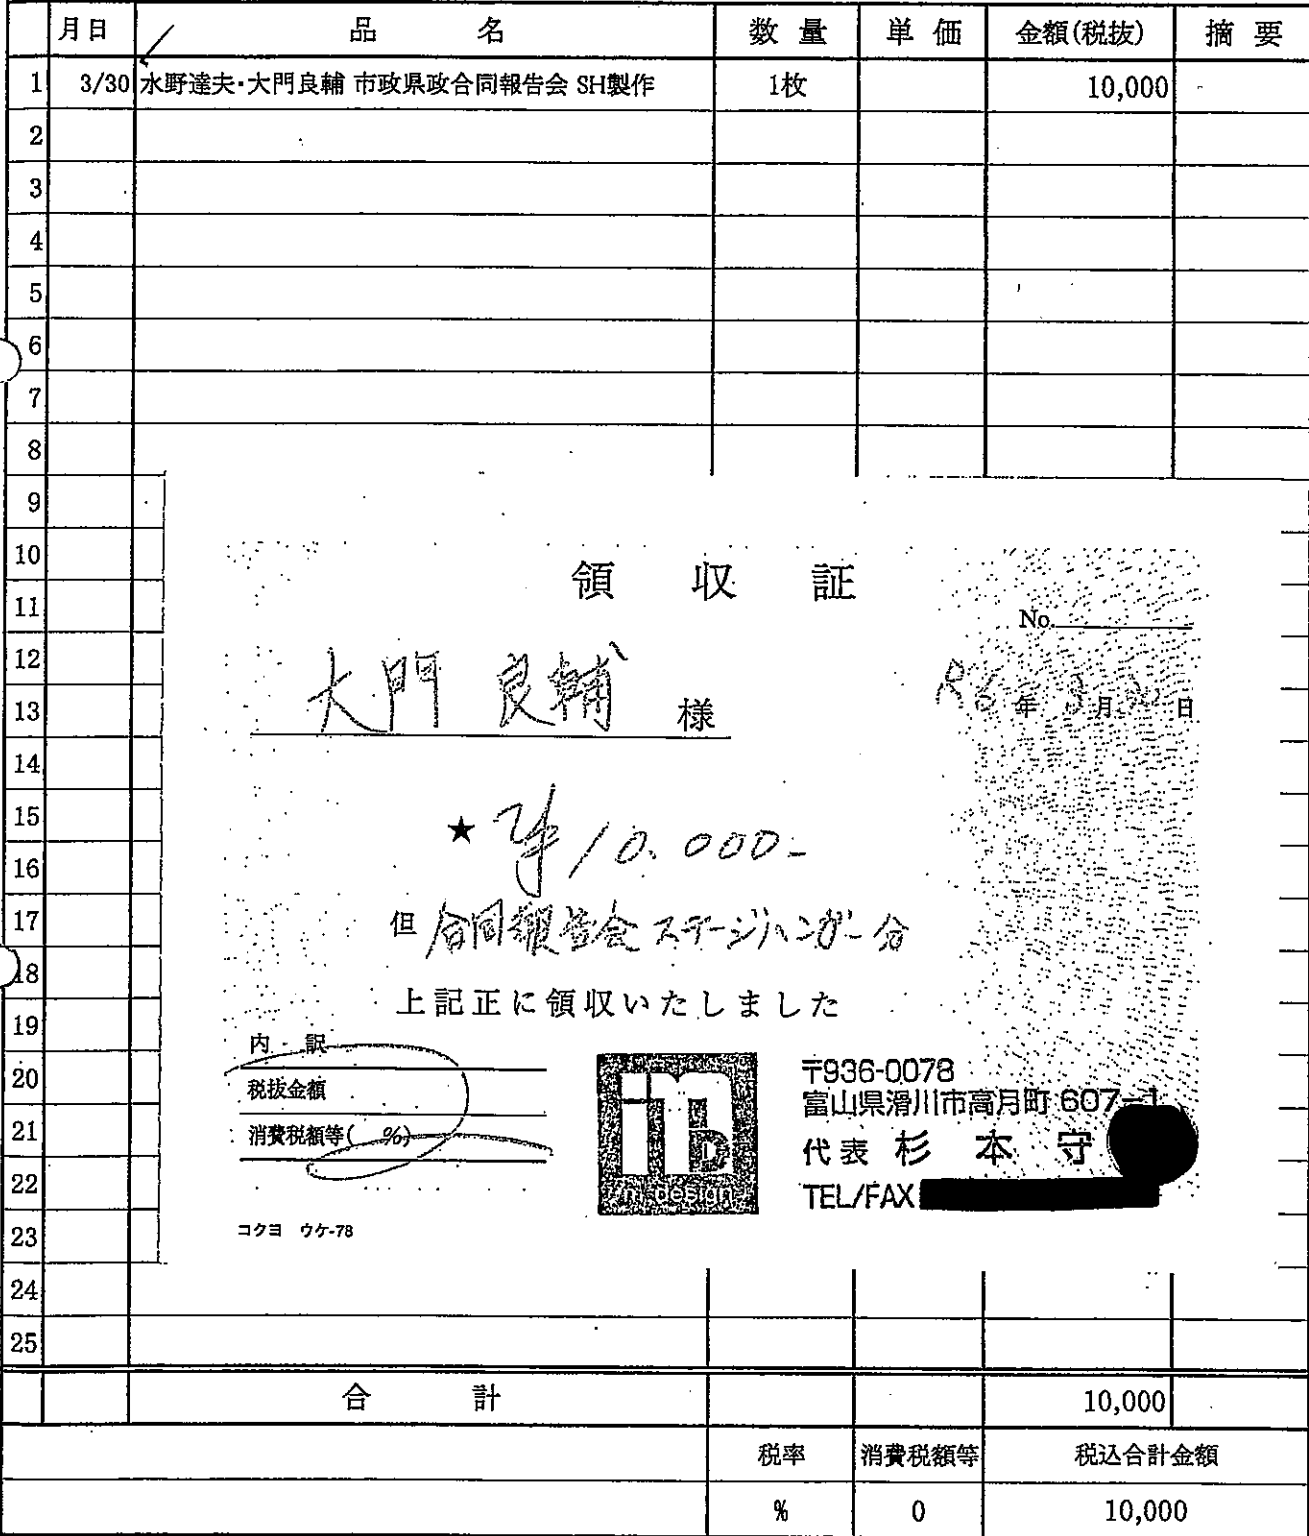 月日 品名 数量 単価 金額(税抜) 摘要
1 3/30 水野達夫・大門良輔 市政県政合同報告会 SH製作 1枚 10,000
2
3
4
5
6
7
8
9
10
11
12
13
14
15
16
17
18
19
20
21
22
23
24
25
領収証
No.
大門 良輔 様
R6年3月30日
★ ¥10.000-
但 合同報告会 ステージハンガー分
上記正に領収いたしました
内訳
税抜金額
消費税額等( %)
コクヨ ウケ-78
im D
m design
〒936-0078
富山県滑川市高月町 607-1
代表 杉本 守
TEL/FAX
合計 10,000
税率 消費税額等 税込合計金額
% 0 10,000